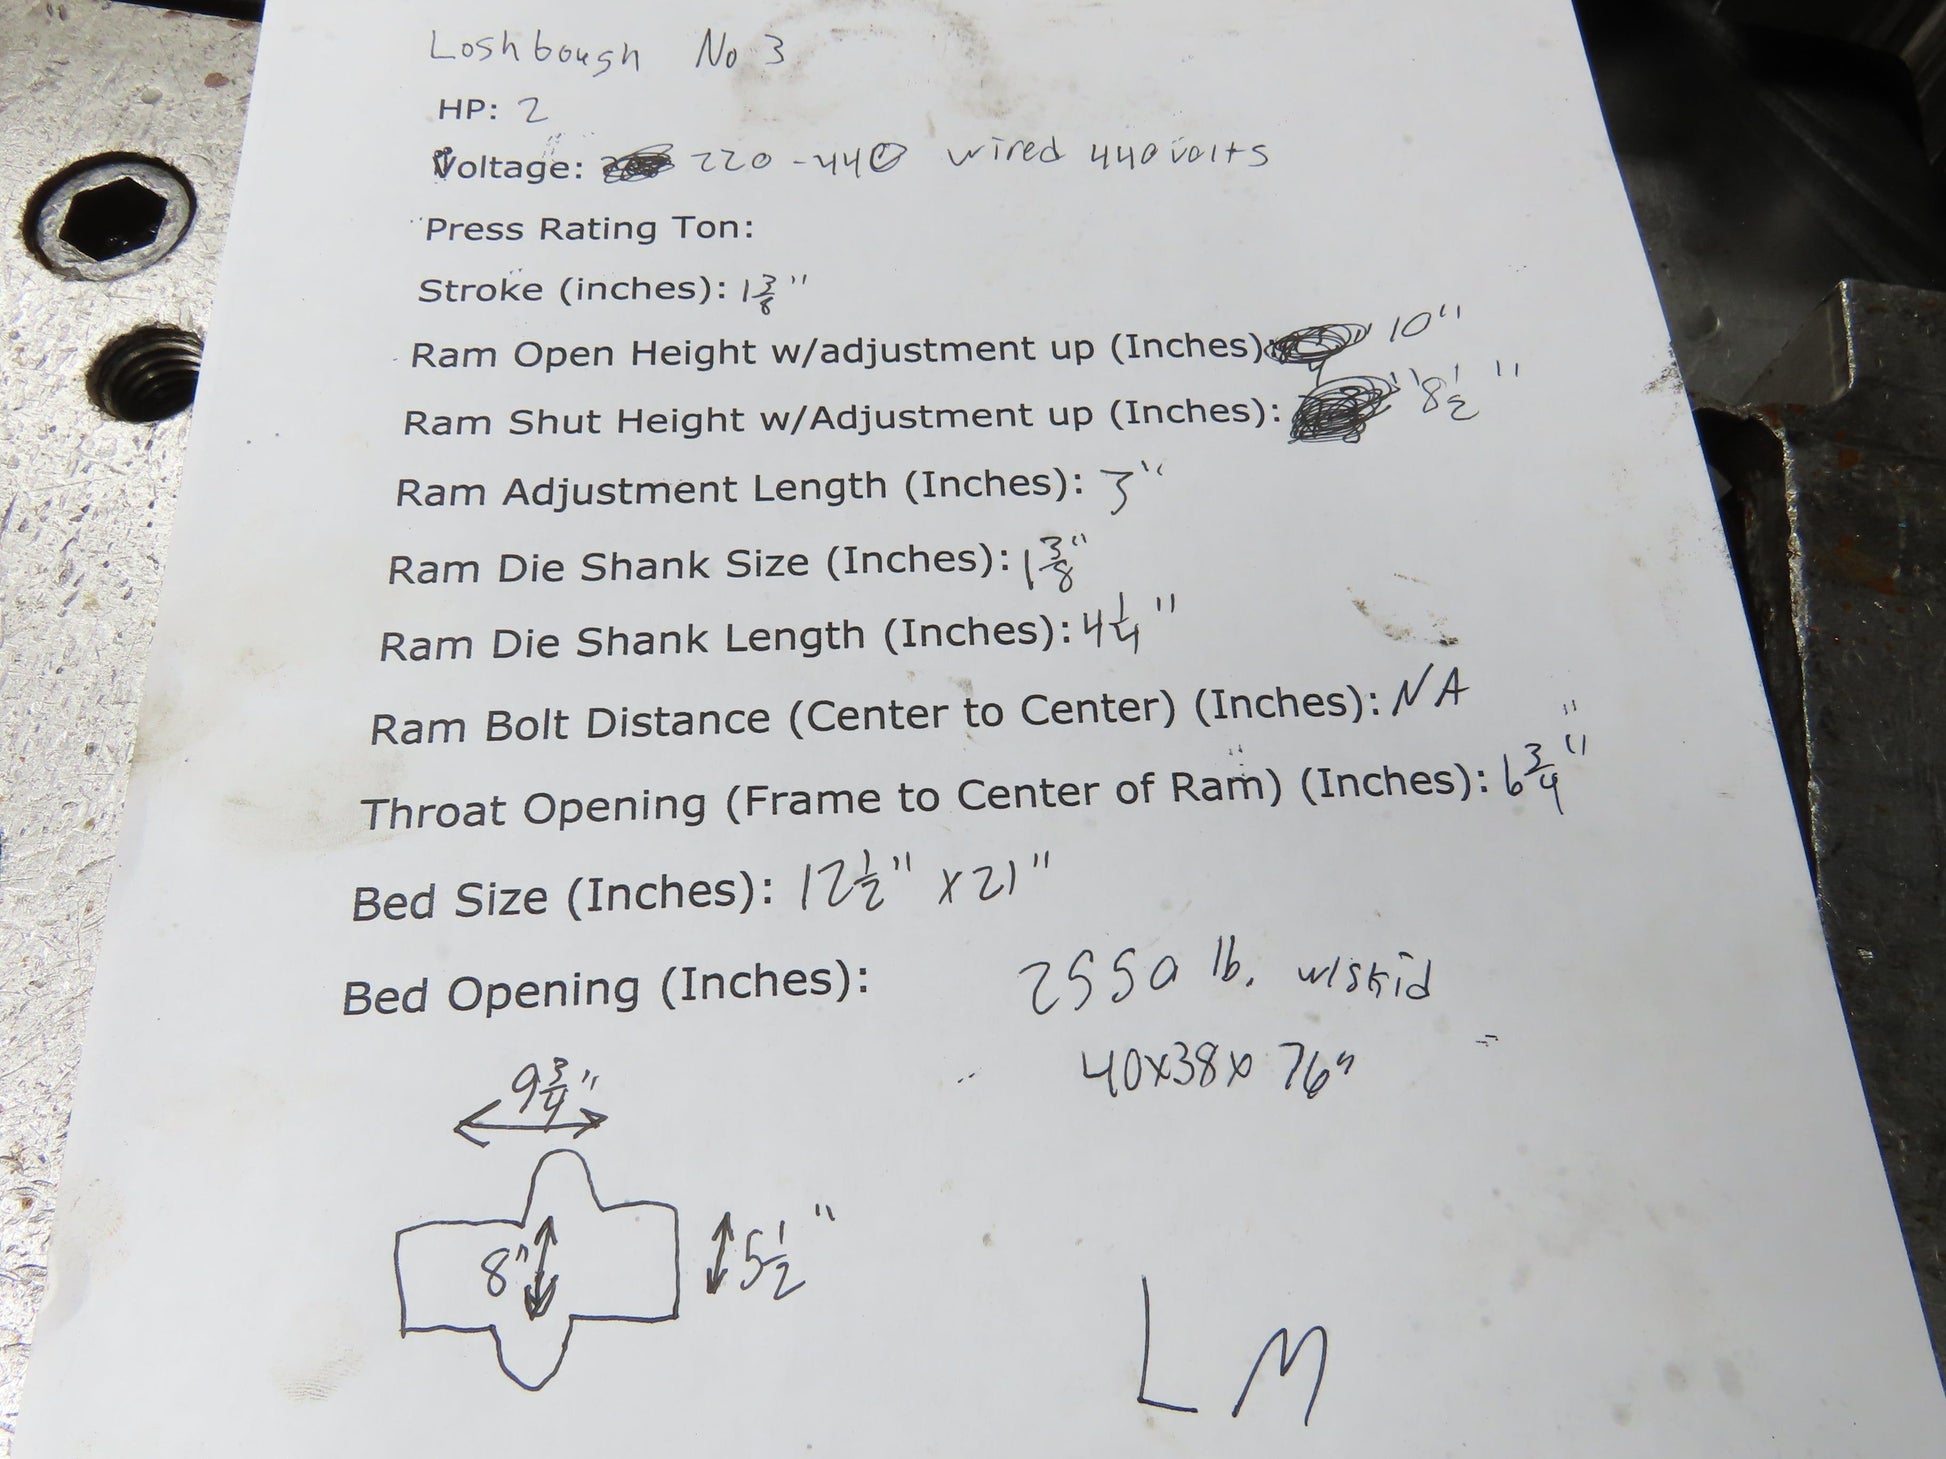 Loshbough No 3
HP: 2
Voltage: 220-440 wired 440 volts
Press Rating Ton:
Stroke (inches): 1 3/8"
Ram Open Height w/adjustment up (Inches): 10"
Ram Shut Height w/Adjustment up (Inches): 8 1/2"
Ram Adjustment Length (Inches): 3"
Ram Die Shank Size (Inches): 1 3/8"
Ram Die Shank Length (Inches): 4 1/4"
Ram Bolt Distance (Center to Center) (Inches): NA
Throat Opening (Frame to Center of Ram) (Inches): 6 3/4"
Bed Size (Inches): 12 1/2" x 21"
Bed Opening (Inches): 2550 lb. w/skid
40x38x 76"
9 3/4"
8" 5 1/2"
LM